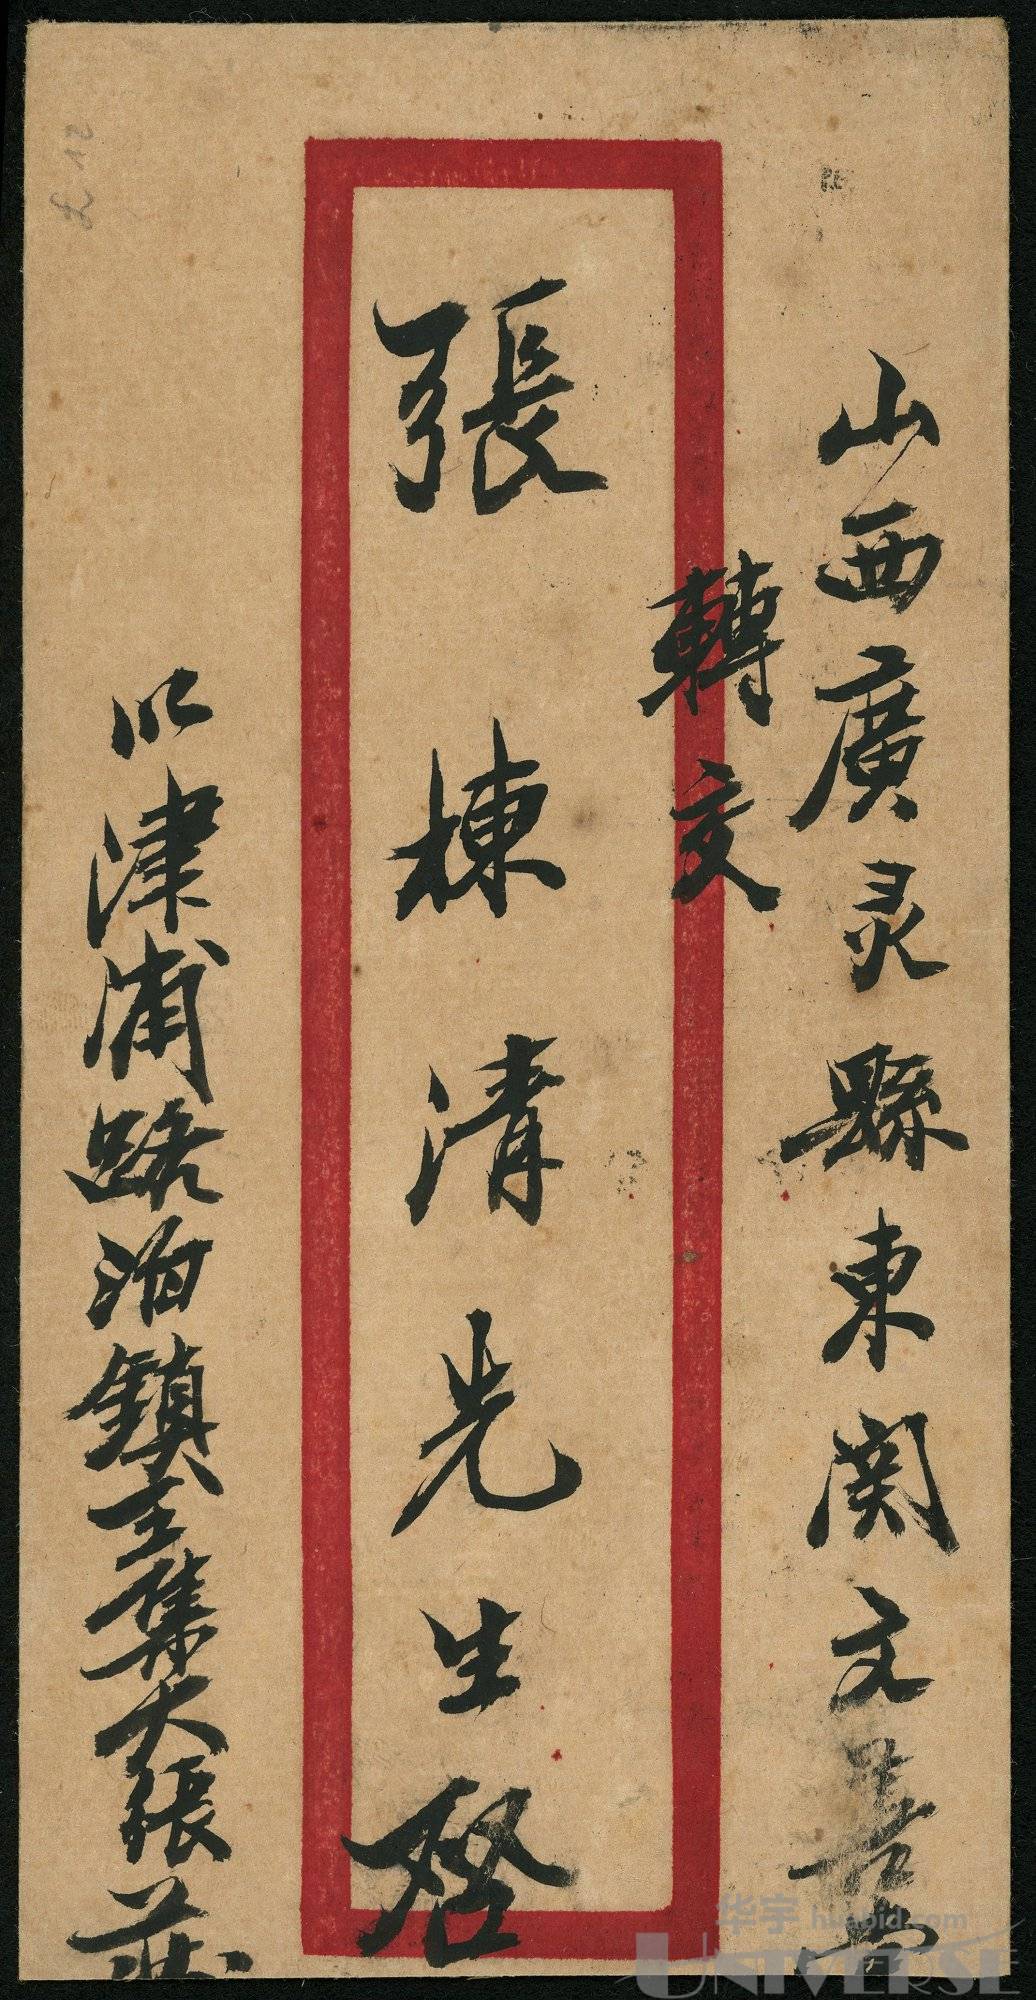 山西廣灵縣東関文善堂
轉交
張棟清先生啓
以津浦路泊鎮王集大張莊
华宇 huabid.com
UNIVERSE